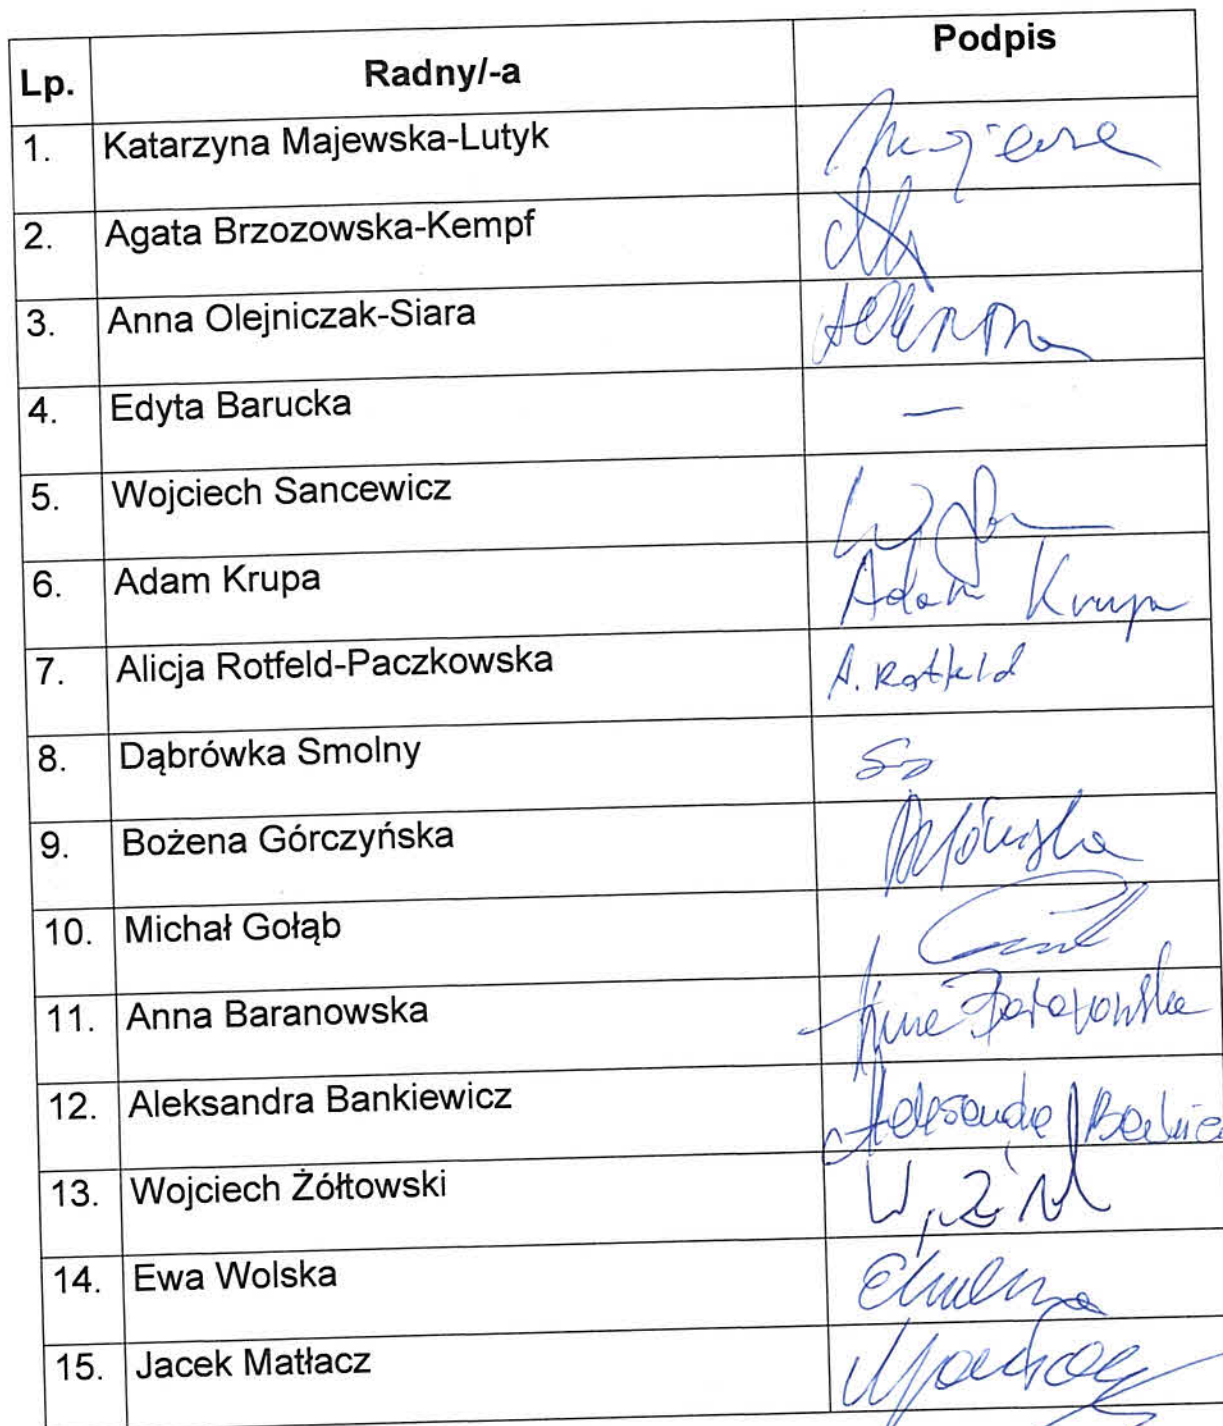 Lp. Radny/-a Podpis
1. Katarzyna Majewska-Lutyk
2. Agata Brzozowska-Kempf
3. Anna Olejniczak-Siara
4. Edyta Barucka —
5. Wojciech Sancewicz
6. Adam Krupa Adam Krupa
7. Alicja Rotfeld-Paczkowska A. Rotfeld
8. Dąbrówka Smolny
9. Bożena Górczyńska
10. Michał Gołąb
11. Anna Baranowska Anna Baranowska
12. Aleksandra Bankiewicz Aleksandra
13. Wojciech Żółtowski
14. Ewa Wolska
15. Jacek Matłacz